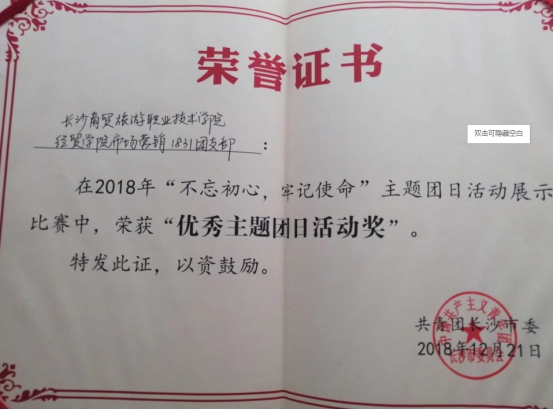 荣誉证书
长沙商贸旅游职业技术学院
经贸学院市场营销1831团支部：
双击可隐藏空白
在2018年“不忘初心，牢记使命”主题团日活动展示
比赛中，荣获“优秀主题团日活动奖”。
特发此证，以资鼓励。
共青团长沙市委
2018年12月21日
中国共产主义青年团
长沙市委员会